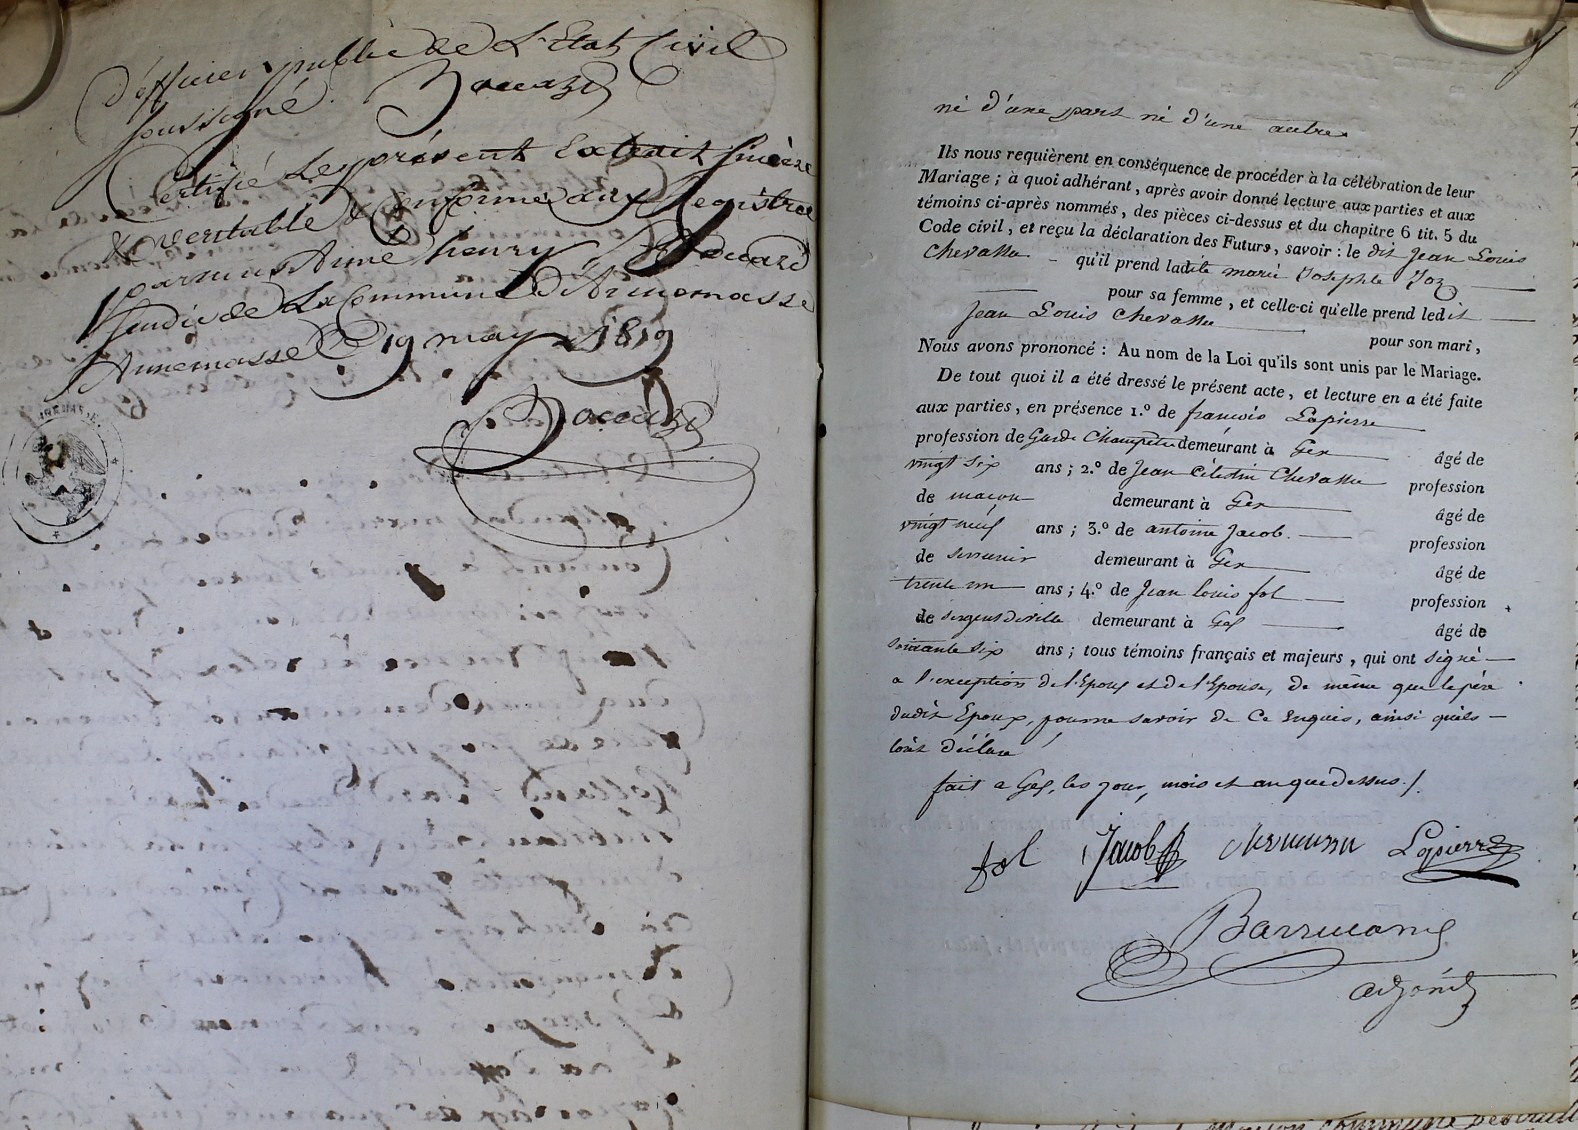 d'officier public de L'Etat Civil
Soussigné
Certifié Le présent Extrait Sincère
& veritable & Conforme aux Registres
par nous Anne henry
Sindic de La Commune d'Annemasse
Annemasse Le 19 may 1819
né d'une part né d'une autre
Ils nous requièrent en conséquence de procéder à la célébration de leur
Mariage ; à quoi adhérant, après avoir donné lecture aux parties et aux
témoins ci-après nommés, des pièces ci-dessus et du chapitre 6 tit. 5 du
Code civil, et reçu la déclaration des Futurs, savoir : le dit Jean Louis
Chevassu qu'il prend ladite marie Josephte Joz
pour sa femme, et celle-ci qu'elle prend ledit
Jean Louis Chevassu pour son mari,
Nous avons prononcé : Au nom de la Loi qu'ils sont unis par le Mariage.
De tout quoi il a été dressé le présent acte, et lecture en a été faite
aux parties, en présence 1.º de françois Lapierre
profession de Garde Champêtre demeurant à Gex âgé de
vingt six ans ; 2.º de Jean Célestin Chevassu profession
de maçon demeurant à Gex âgé de
vingt neuf ans ; 3.º de antoine Jacob. profession
de serrurier demeurant à Gex âgé de
trente un ans ; 4.º de Jean Louis fol profession
de sergent de ville demeurant à Gex âgé de
soixante six ans ; tous témoins français et majeurs, qui ont signé
a l'exception de l'Epoux et de l'Epouse, de même que le père
dudit Epoux, pour ne savoir de ce enquis, ainsi qu'ils
l'ont déclaré
fait a Gex, les jour, mois et an que dessus ./.
fol Jacob Lapierre
adjoint